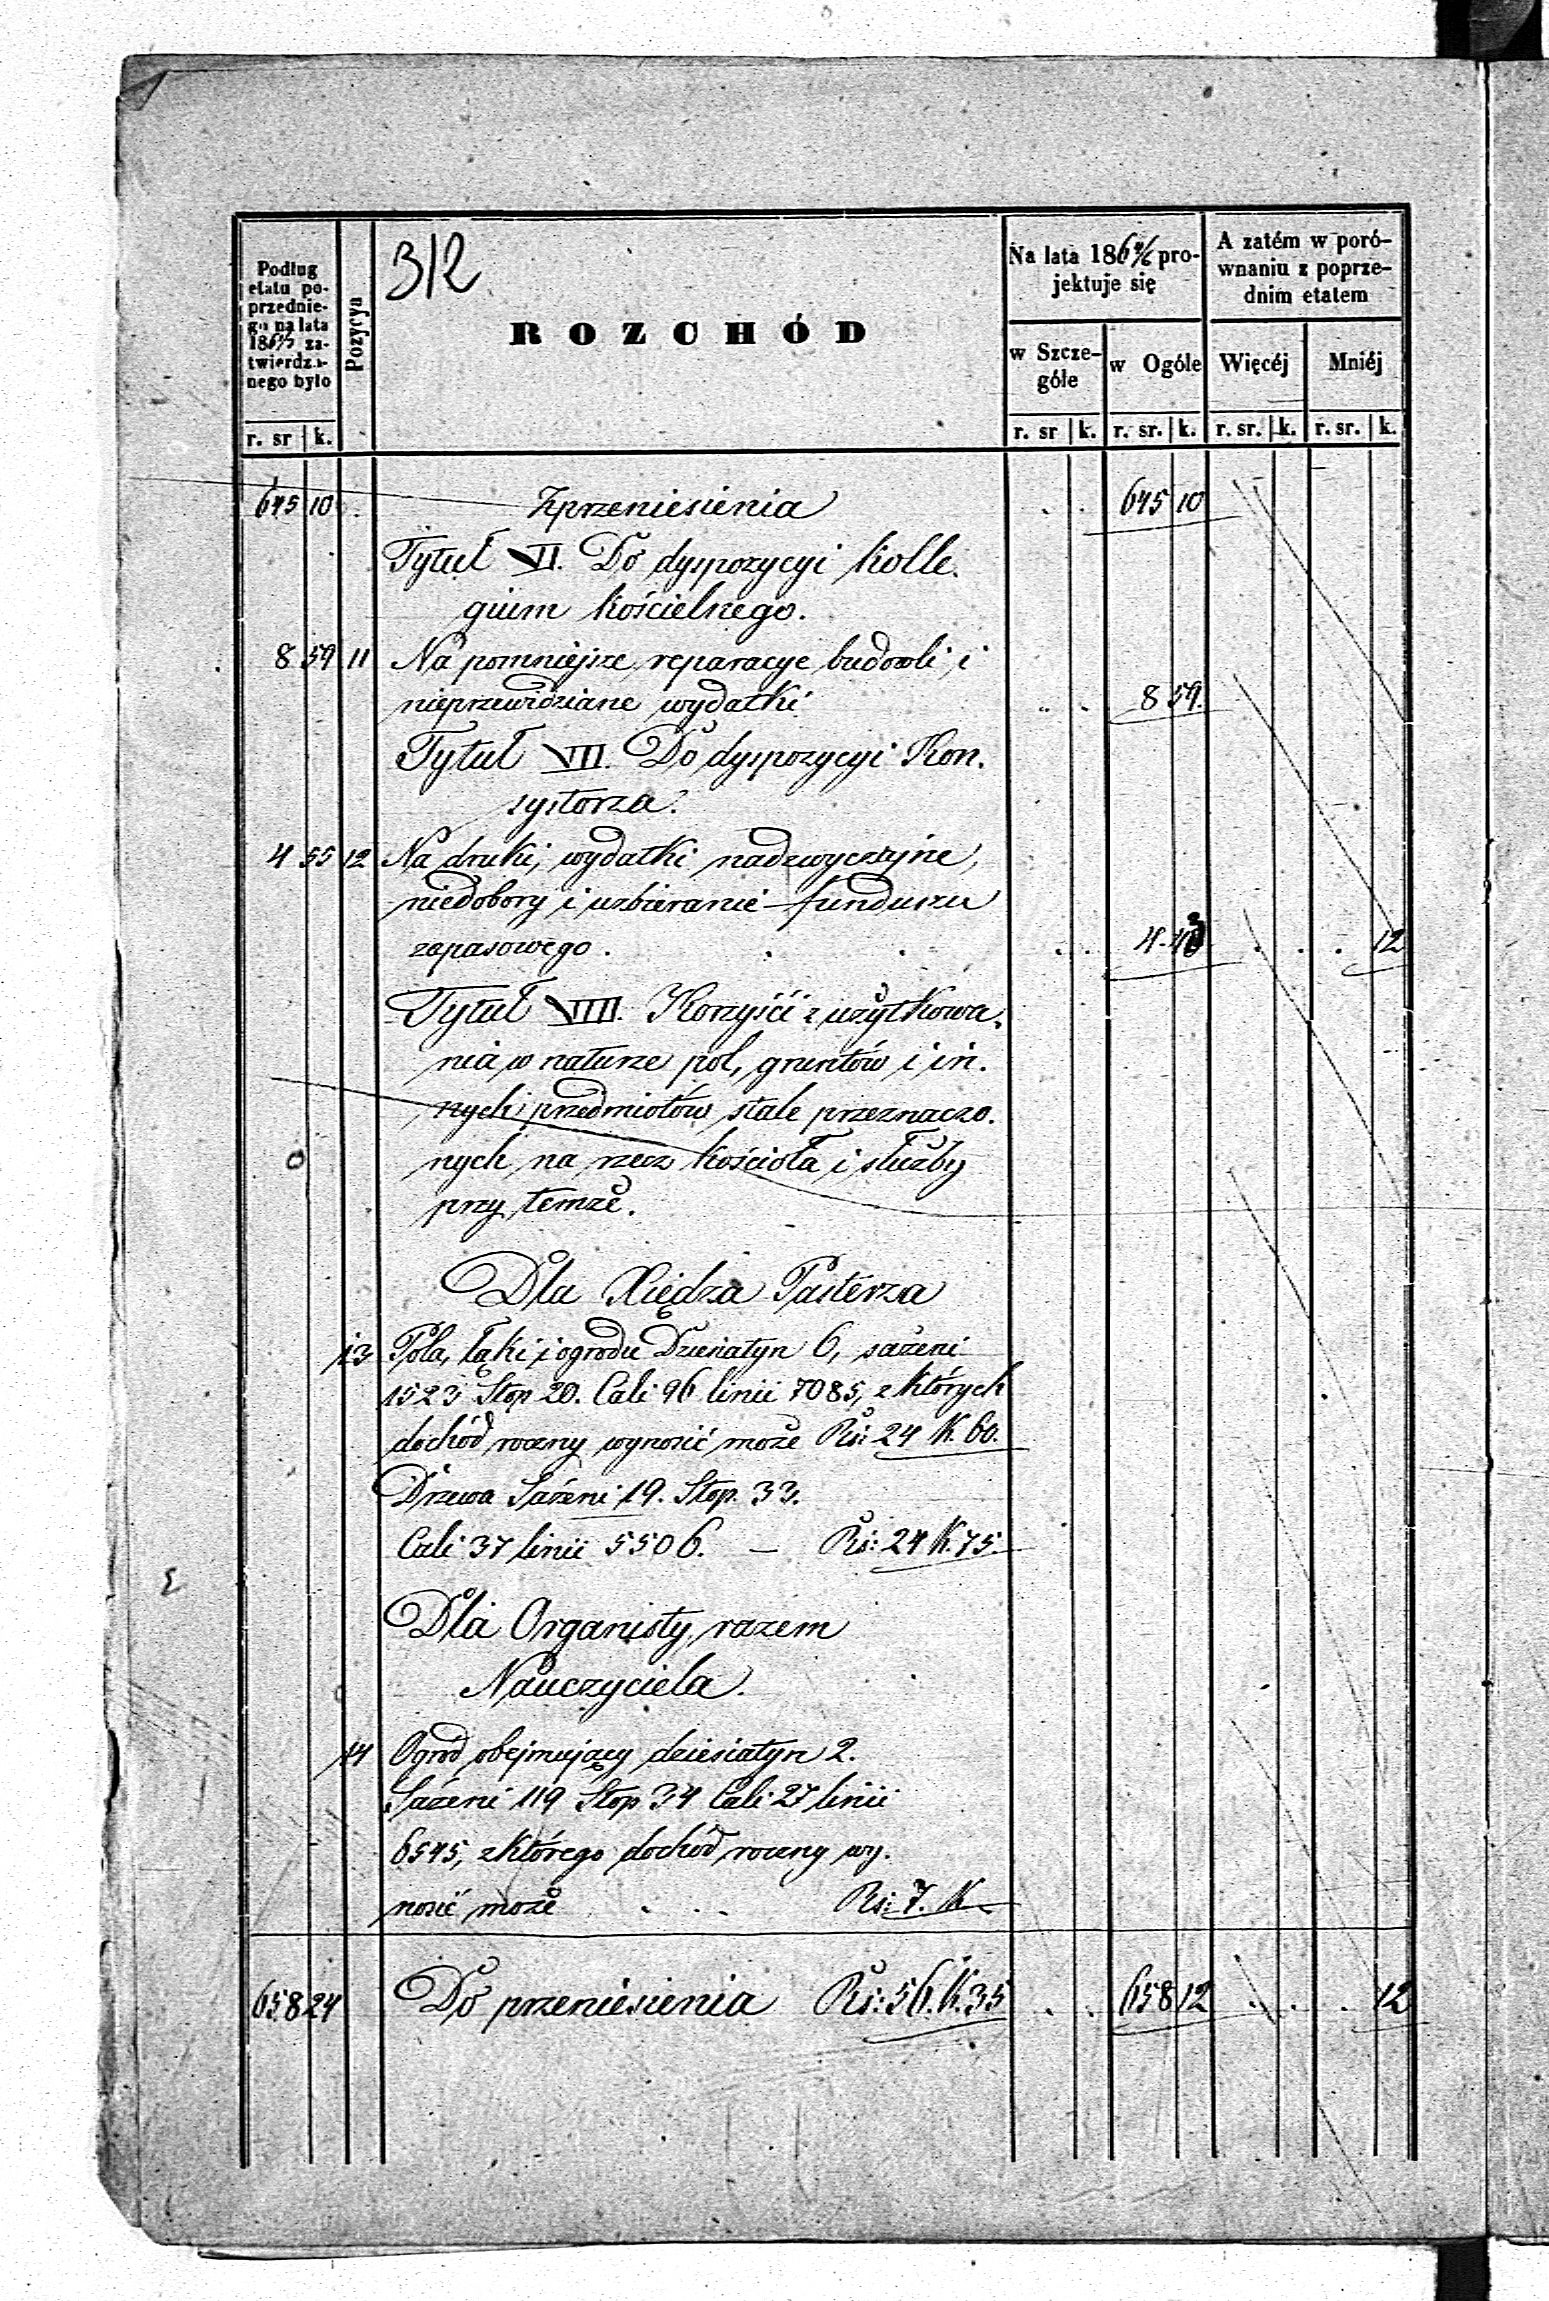 312
ROZCHÓD
Podług etatu po-
przednie-
go na lata
186 za-
twierdzo-
nego było
Pozycya
Na lata 186 pro-
jektuje się
A zatém w poró-
wnaniu z poprze-
dnim etatem
w Szcze-
góle
w Ogóle
Więcéj
Mniéj
r. sr k. r. sr k. r. sr. k. r. sr. k. r. sr. k.
645 10 Zprzeniesienia 645 10
Tytuł VI. Do dyspozycyi Kolle.
gium Kościelnego.
8 59 11 Na pomniejsze reparacye budowli i
nieprzewidziane wydatki 8 59.
Tytuł VII. Do dyspozycyi Kon.
systorza.
4 55 12 Na druki, wydatki nadzwyczajne,
niedobory i uzbieranie funduszu
zapasowego. 4 43 12
Tytuł VIII. Korzyści z użytkowa.
nia w naturze pol, gruntów i in.
nych przedmiotów stale przeznaczo.
nych na rzecz Kościoła i służby
przy temże.
Dla Xiędza Pasterza
13 Pola, łąki i ogrodu Dziesiatyn 6, sażeni
1523 Stop 20. Cali 96 linii 7085, z których
dochód roczny wynosić może Rs: 24 K. 60.
Drzewa Sażeni 19. Stop. 33.
Cali 37 linii 5506. — Rs: 24 K. 75.
Dla Organisty razem
Nauczyciela.
14 Ogród obejmujący dziesiatyn 2.
Sażeni 119 Stop 34 Cali 27 linii
6545, z którego dochód roczny wy.
nosić może . . . Rs: 7. K —
658 24 Do przeniesienia Rs: 56. K. 35 658 12 12